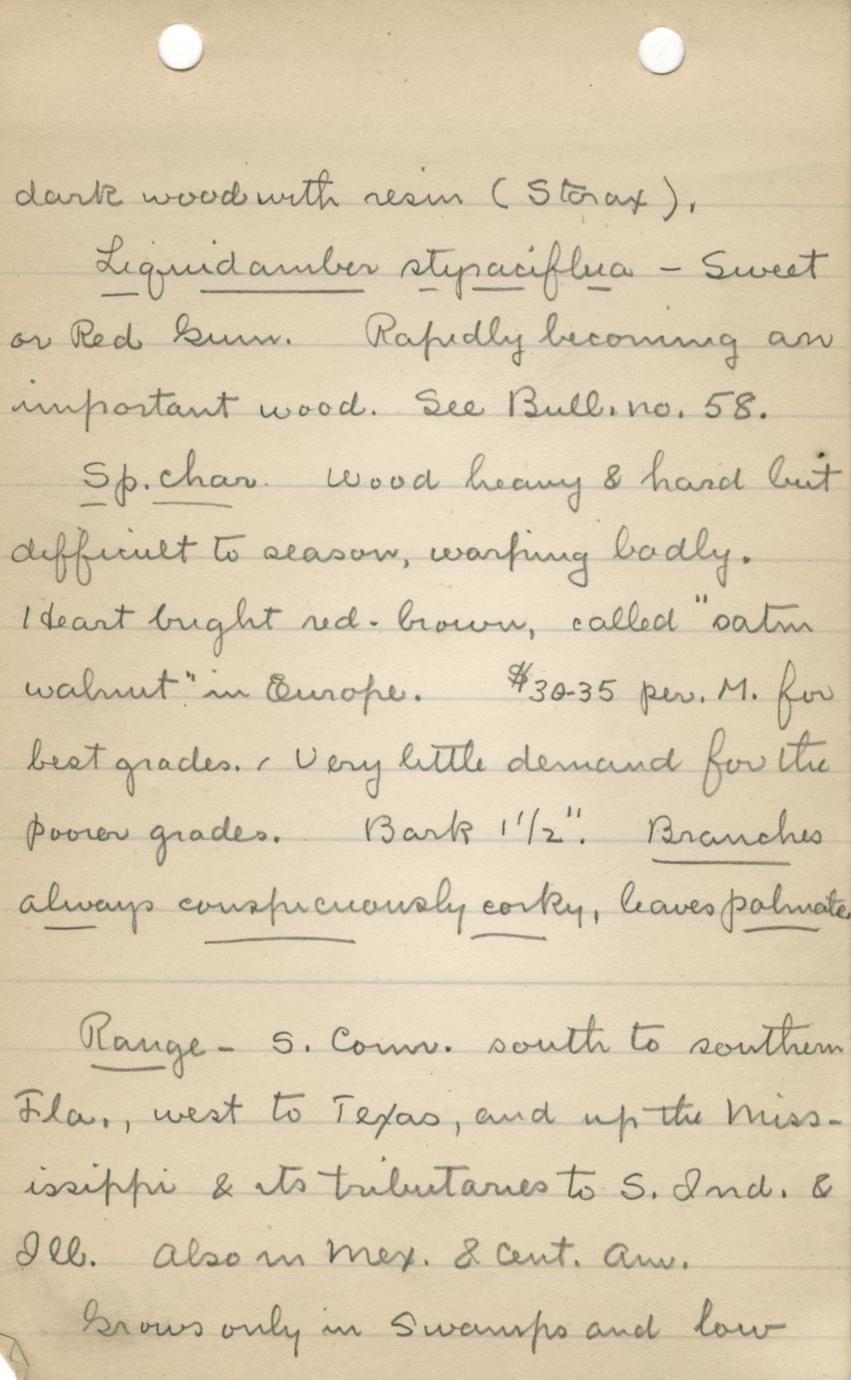 dark wood with resin (Storax).
Liquidamber stypaciflua - Sweet
or Red Gum. Rapidly becoming an
important wood. See Bull. no. 58.
Sp. char. Wood heavy & hard but
difficult to season, warping badly.
Heart bright red-brown, called "satin
walnut" in Europe. $30-35 per. M. for
best grades. Very little demand for the
poorer grades. Bark 1 1/2". Branches
always conspicuously corky, leaves palmate
Range - S. Conn. south to southern
Fla., west to Texas, and up the Miss-
issippi & its tributaries to S. Ind. &
Ill. Also in Mex. & Cent. Am.
Grows only in Swamps and low